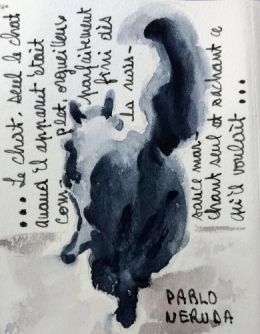 ... Le chat, seul le chat
quand il apparut était
com-
plet, orgueilleux
parfaitement
fini dès
la nais-
sance mar-
chant seul et sachant ce
qu'il voulait ...
PABLO
NERUDA